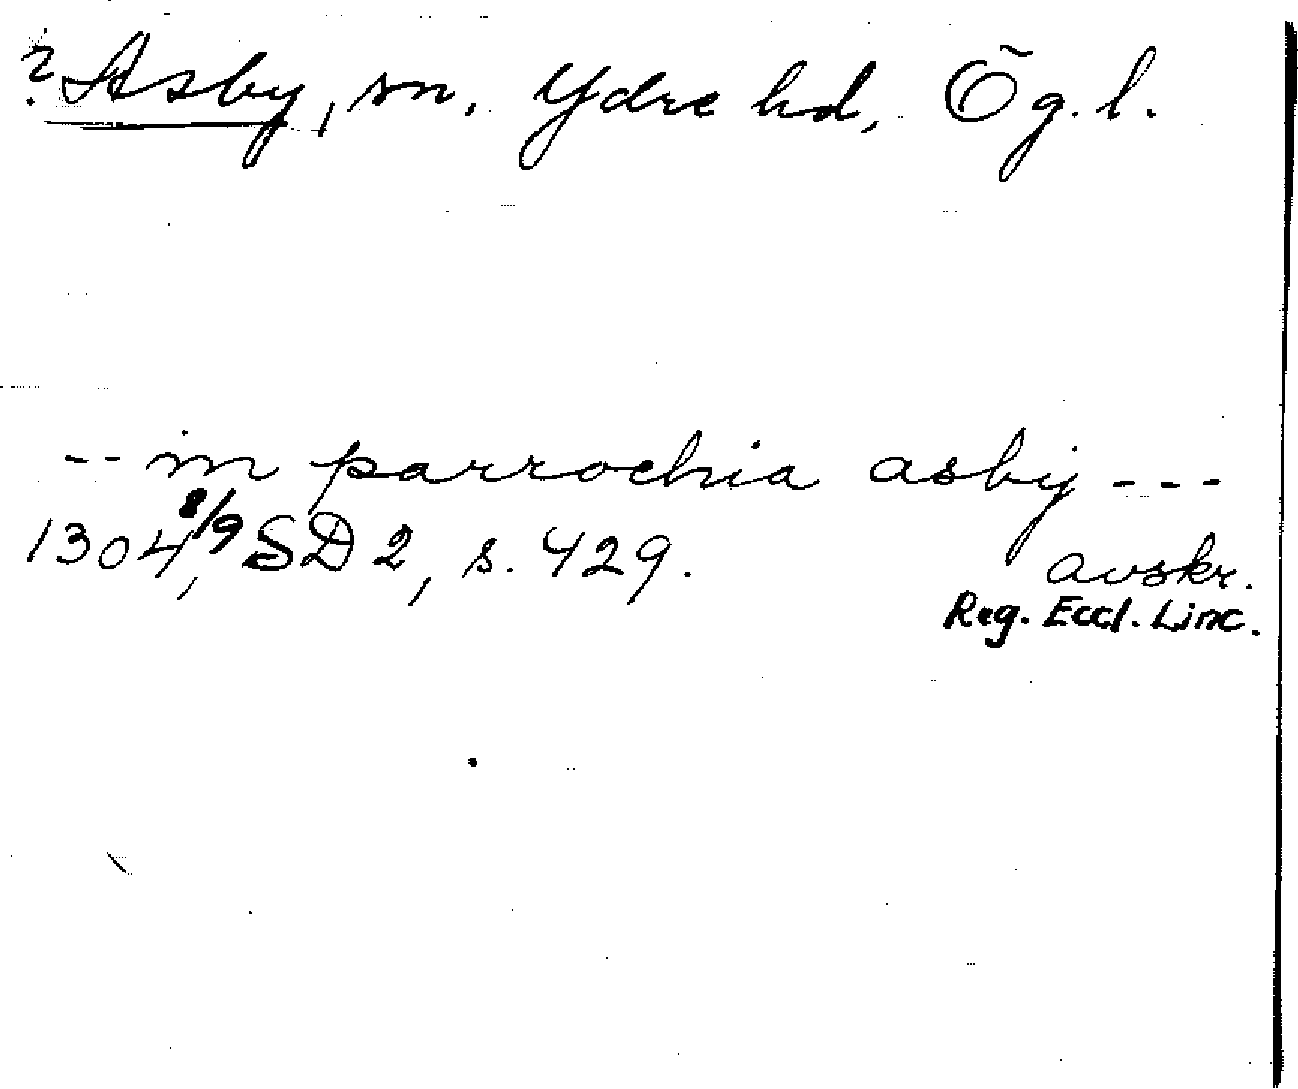 ? Asby, sn, Ydre hd, Ög. l.
-- in parrochia asby ---
1304, 8/9 SD 2, s. 429.
avskr.
Reg. Eccl. Linc.